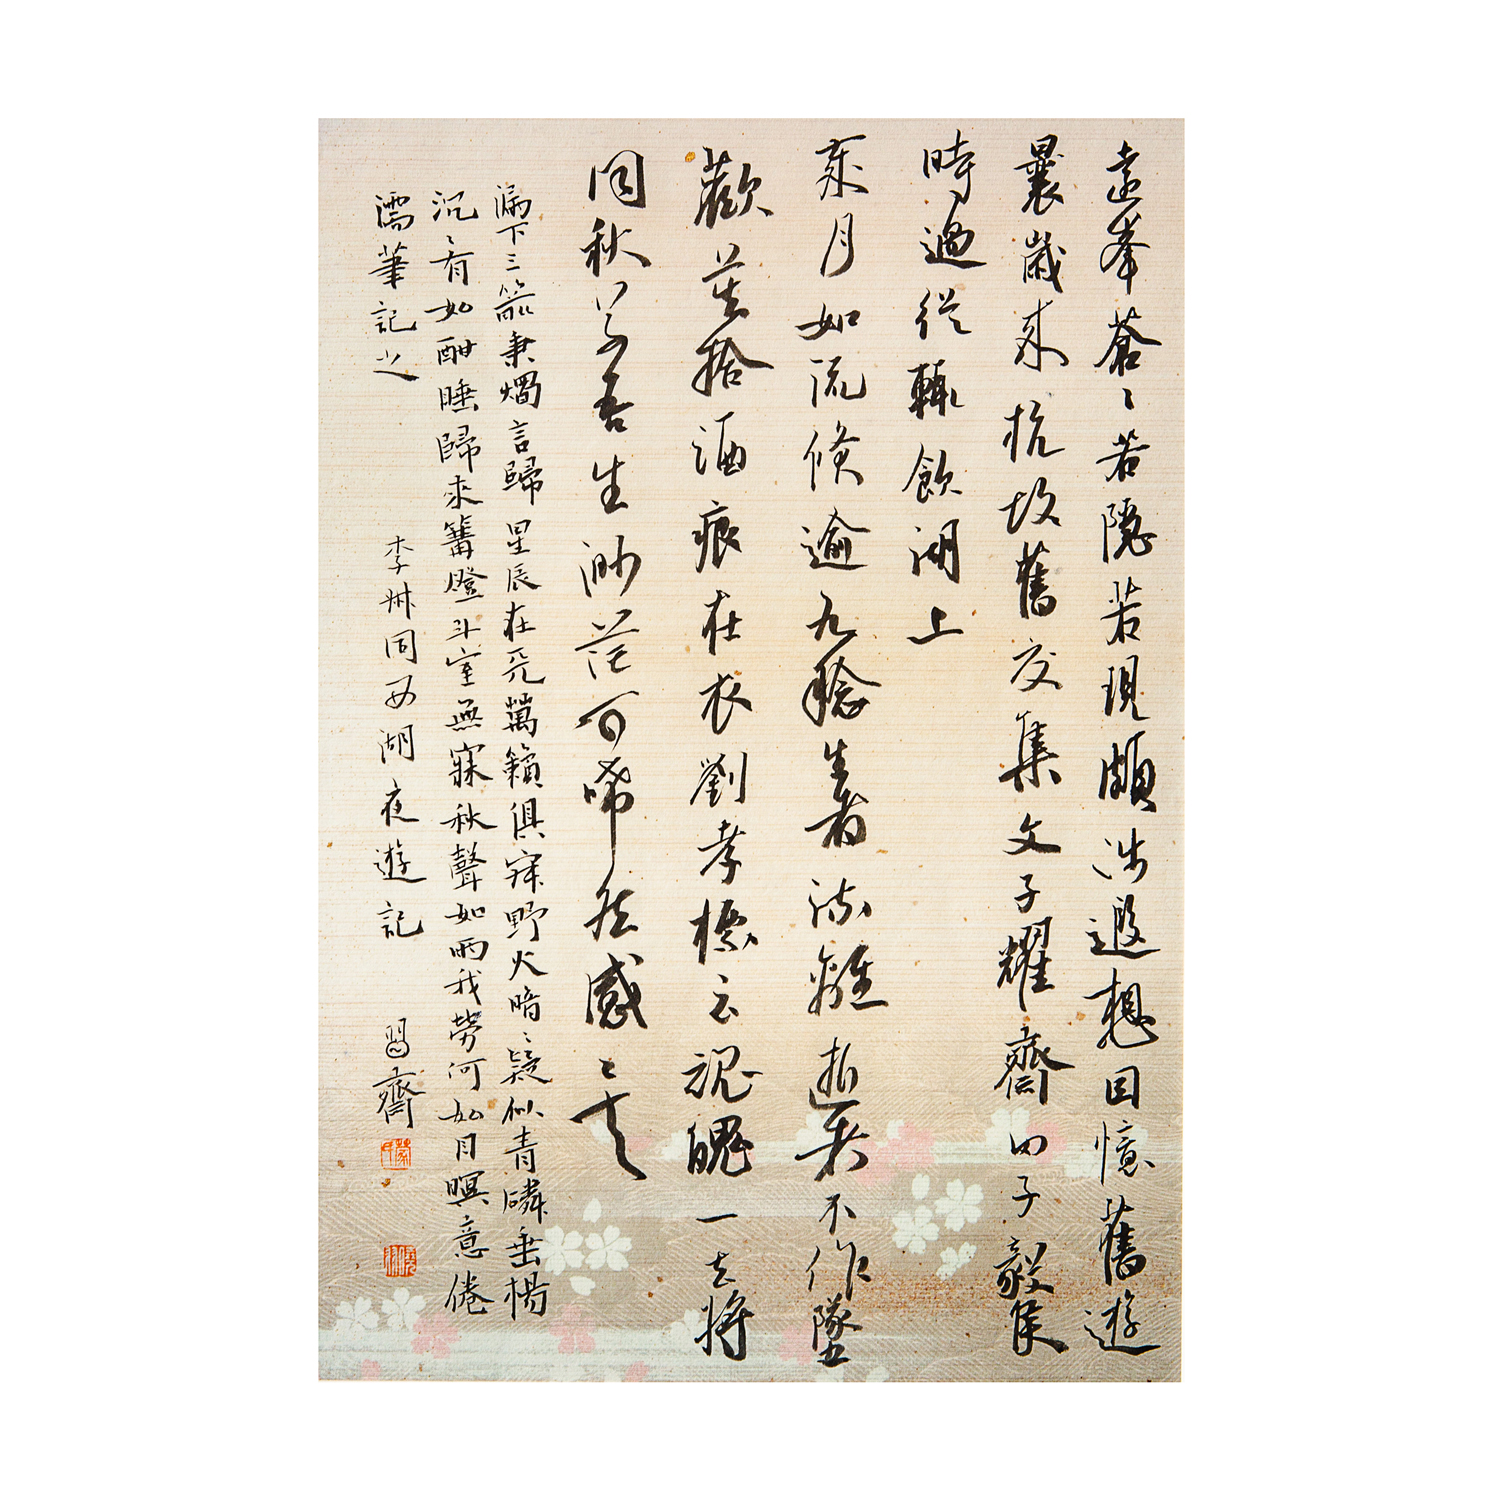 遠峯蒼〻若隱若現頗涉遐想回憶舊遊
曩歲來杭故舊友集文子耀齋田子毅侯
時過從輒飲湖上
來月如流倐逾九稔生者流離逝者不作墜
歡莫拾酒痕在衣劉孝標云魂魄一去將
同秋草吾生渺茫可唏然感〻矣
漏下三箭秉燭言歸星辰在天萬籟俱寂野火暗〻疑似青磷垂楊
沉〻有如酣睡歸來篝燈斗室無寐秋聲如雨我勞何如目瞑意倦
濡筆記之
李叔同西湖夜遊記 習齋